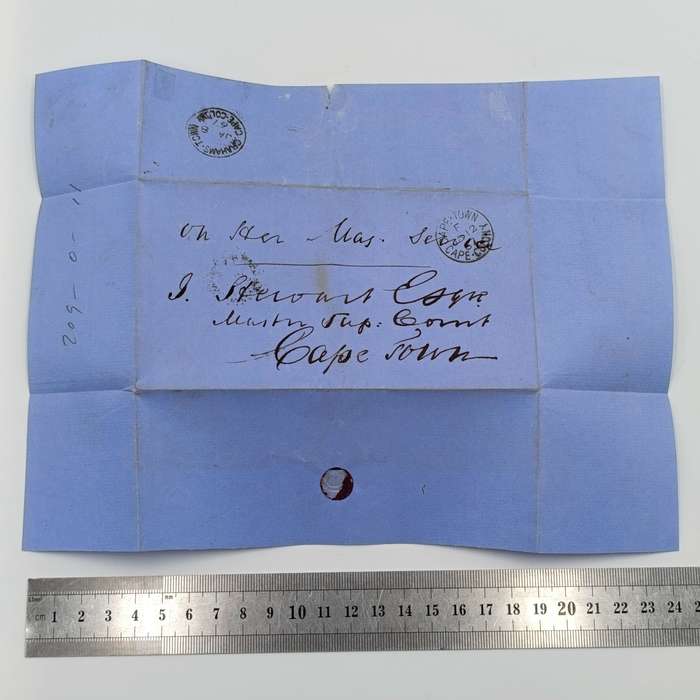 GRAHAMS-TOWN
JA
CAPE-COLONY
CAPE-TOWN
12
CAPE-COLONY
On Her Maj. Service
J. Stewart Esqre
Master Sup: Court
Cape Town
209-0-11
cm 1 2 3 4 5 6 7 8 9 10 11 12 13 14 15 16 17 18 19 20 21 22 23 24